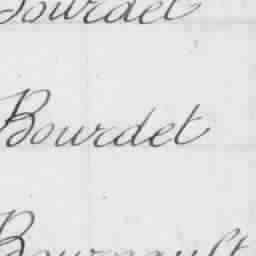 Bourdet
Bourdet
Bourgault